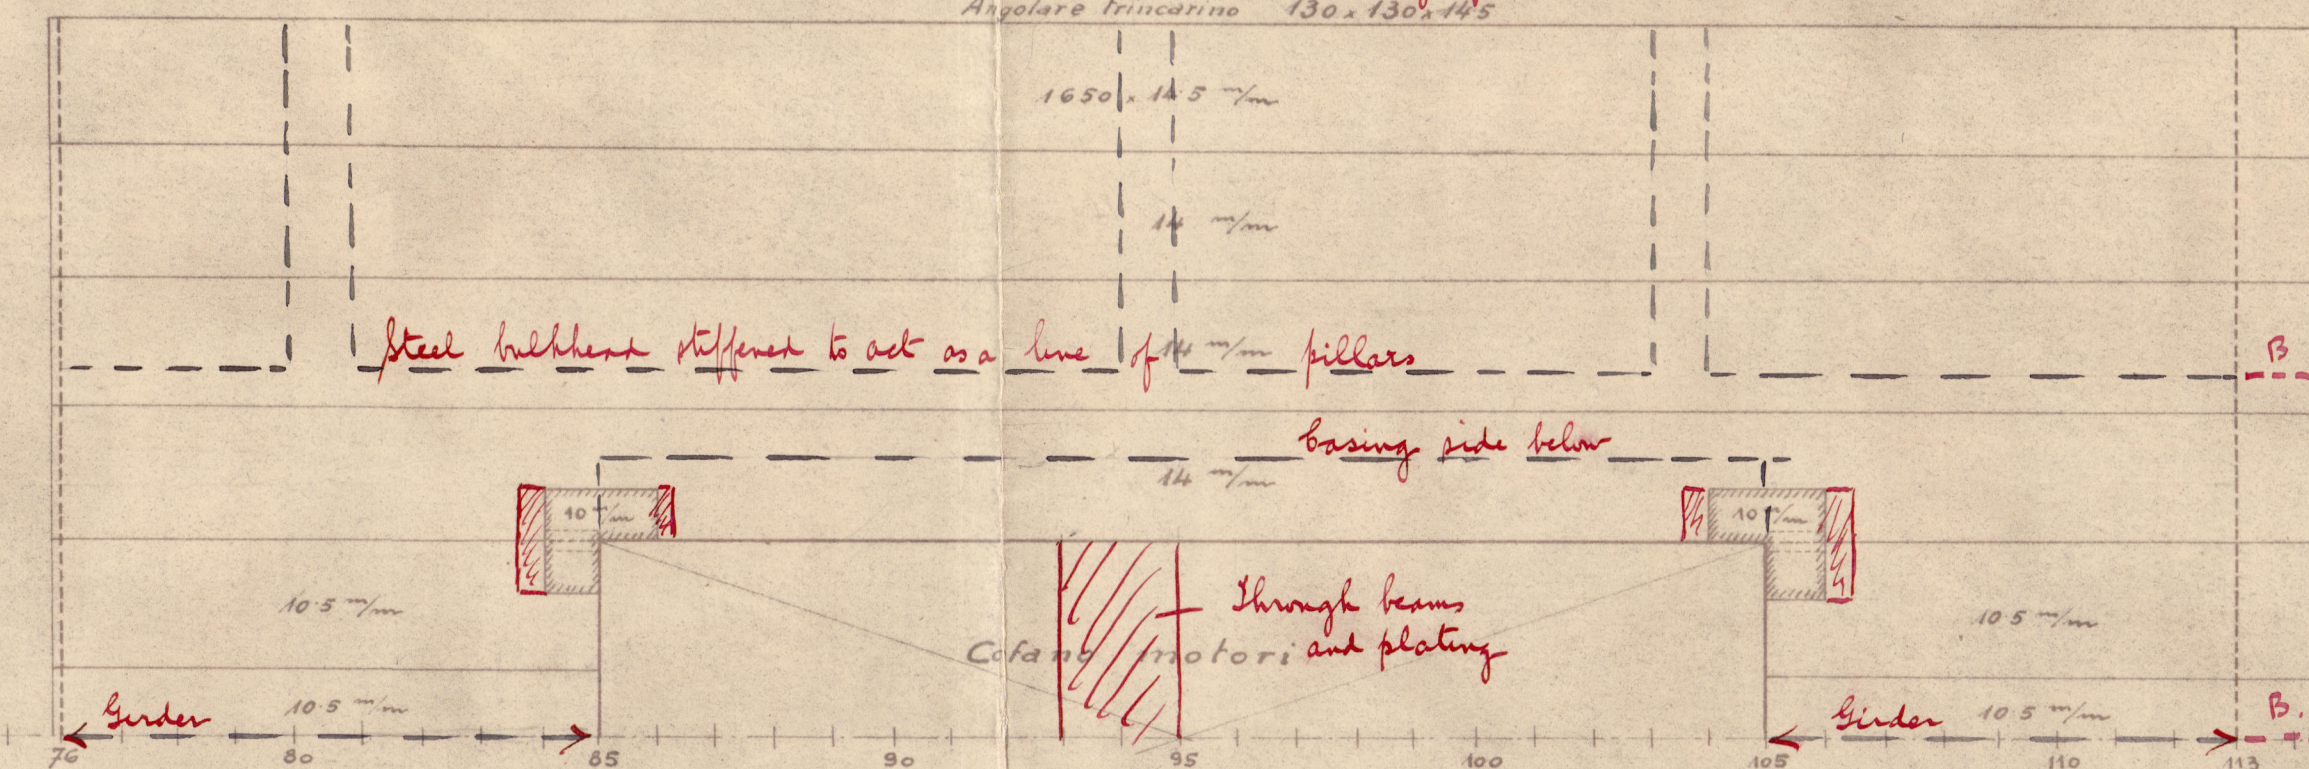 Angolare trincarino 130 x 130 x 14.5
1650 x 14.5 m/m
14 m/m
Steel bulkhead stiffened to act as a line of pillars
14 m/m
B
Casing side below
14 m/m
10 m/m
10 m/m
Through beams
and plating
10.5 m/m
10.5 m/m
Cofano motori
Girder
10.5 m/m
Girder
10.5 m/m
B.
76 80 85 90 95 100 105 110 113